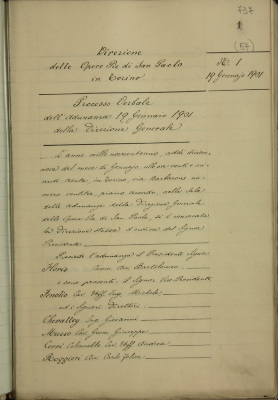 737
1
(57)
Direzione
delle Opere Pie di San Paolo
in Torino
N.° 1
19 Gennajo 1901
Processo Verbale
dell'Adunanza 19 Gennaio 1901
della Direzione Generale
L'anno mille novecentouno, addì dician-
nove del mese di Gennajo, alle ore venti e mi-
nuti trenta, in Torino, via Monte di Pietà nu-
mero trentadue, piano secondo, nella Sala
delle adunanze della Direzione Generale
delle Opere Pie di San Paolo, si è convocata
la Direzione stessa d'ordine del Signor
Presidente.
Presiede l'adunanza il Presidente Signor
Florio Comm. Avv. Bartolomeo
e sono presenti: il Signor Vice Presidente
Fenolio Cav. Uff. Ing. Michele
ed i Signori Direttori
Chevalley Cav. Ing. Giovanni
Musso Cav. Giuseppe
Cav. Uff. Andrea
Roggieri Cav. Carlo Felice